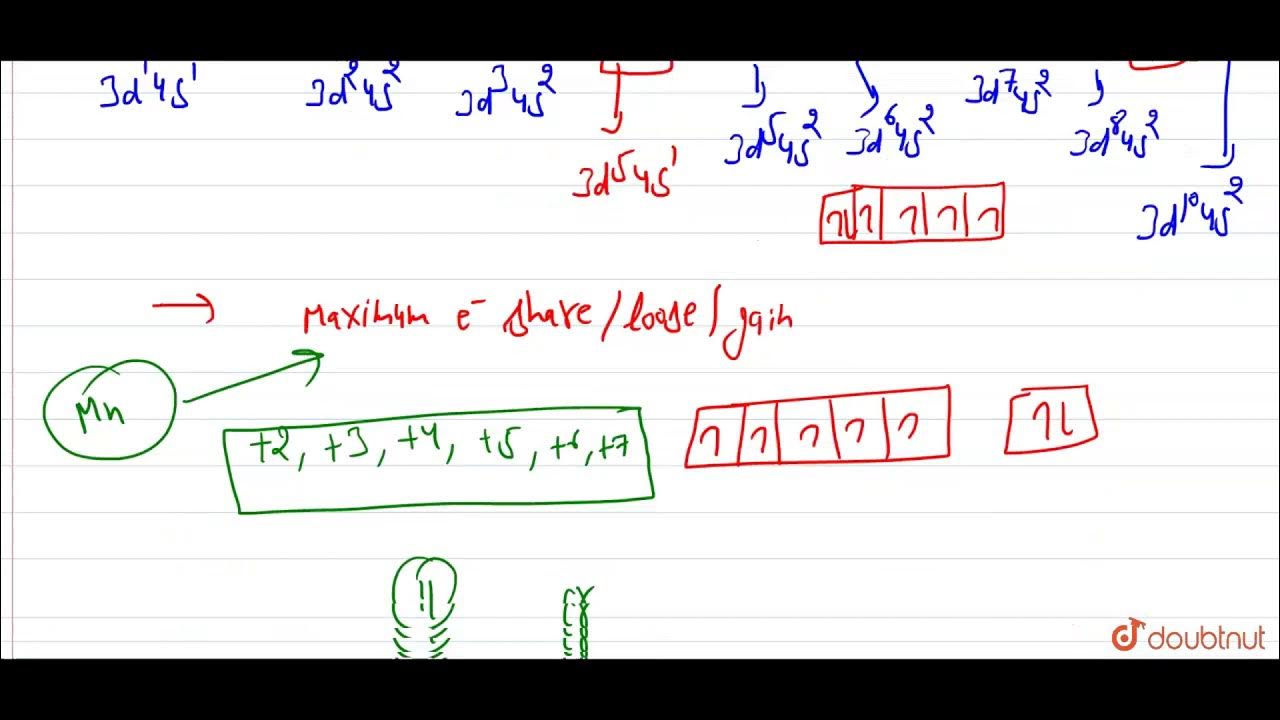 3d¹4s¹ 3d²4s² 3d³4s² 3d⁷4s²
3d⁵4s² 3d⁶4s² 3d⁸4s²
3d⁵4s¹
3d¹⁰4s²
→ Maximum e⁻ share/loose/gain
Mn
+2, +3, +4, +5, +6, +7
doubtnut